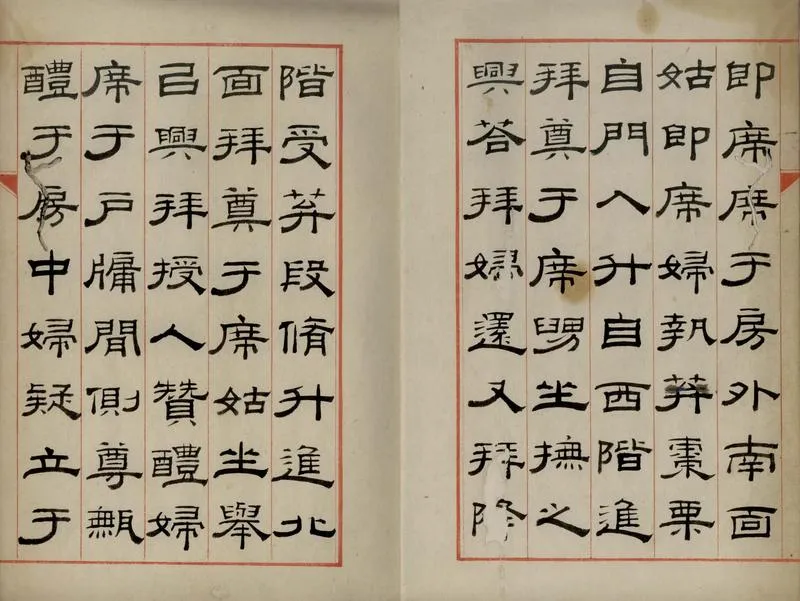 即席席于房外南面
姑即席婦執笲棗栗
自門入升自西階進
拜奠于席舅坐撫之
興荅拜婦還又拜降
階受笲段脩升進北
面拜奠于席姑坐舉
㠯興拜授人贊醴婦
席于戶牖間側尊甒
醴于房中婦疑立于